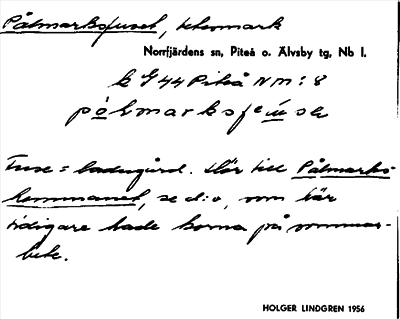 Pålmarksfuset, utomark
Norrfjärdens sn, Piteå o. Älvsby tg, Nb l.
k G 44 Piteå NM: 8
pålmarksf
Fuse = ladugård. Hör till Pålmarks-
kommanet, se d:o, som här
tidigare hade korna på sommar-
bete.
HOLGER LINDGREN 1956